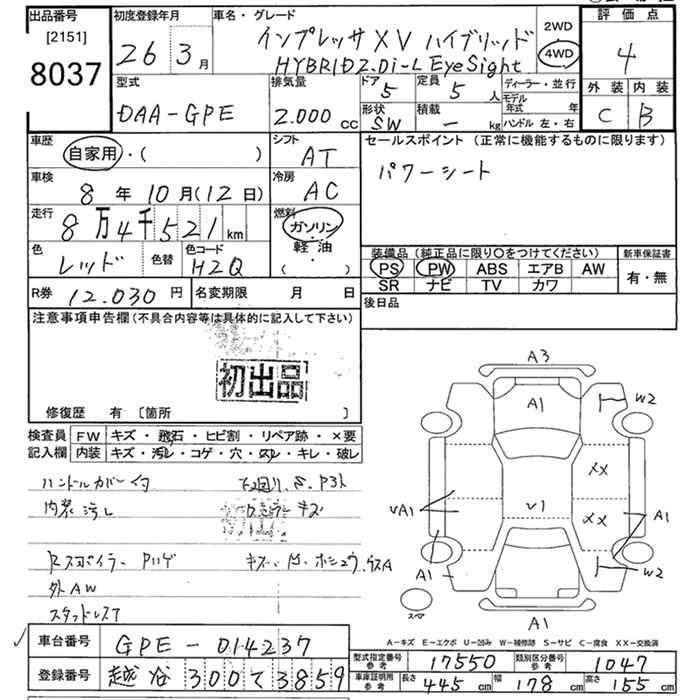 出品番号
[2151]
8037
初度登録年月
26年3月
車名・グレード
インプレッサXV ハイブリッド
HYBRID2.0i-L EyeSight
2WD
4WD
評価点
4
外装 内装
C B
型式
DAA-GPE
排気量
2.000 cc
ドア 5
定員 5 人
形状 SW
積載 ー kg
ディーラー・並行
モデル年式 年
ハンドル 左・右
車歴
自家用・( )
シフト
AT
車検
8年10月(12日)
冷房
AC
走行
8万4千521 km
燃料
ガソリン
軽・油
( )
色
レッド
色替
色コード
H2Q
R券 12.030円
名変期限 月 日
セールスポイント(正常に機能するものに限ります)
パワーシート
装備品(純正品に限り○をつけてください)
PS PW ABS エアB AW
SR ナビ TV カワ
新車保証書
有・無
後日品
注意事項申告欄(不具合内容等は具体的に記入して下さい)
初出品
修復歴 有〔箇所 〕
検査員記入欄
FW キズ・飛石・ヒビ割・リペア跡・×要
内装 キズ・汚レ・コゲ・穴・スレ・キレ・破レ
ハンドルカバー付
下廻り、S、Pサビ
内装汚し
ドアミラーキズ
Rスポイラー Pハゲ
外AW
スタッドレス
A3
A1
W2
XX
XX
VA1
V1
A1
A1
W2
A1
スペア
A-キズ E-エクボ U-凹み W-補修跡 S-サビ C-腐食 XX-交換済
車台番号
GPE-014237
登録番号
越谷300て3859
型式指定番号参考 17550
類別区分番号参考 1047
車庫証明用参考
長さ 445 cm 幅 178 cm 高さ 155 cm